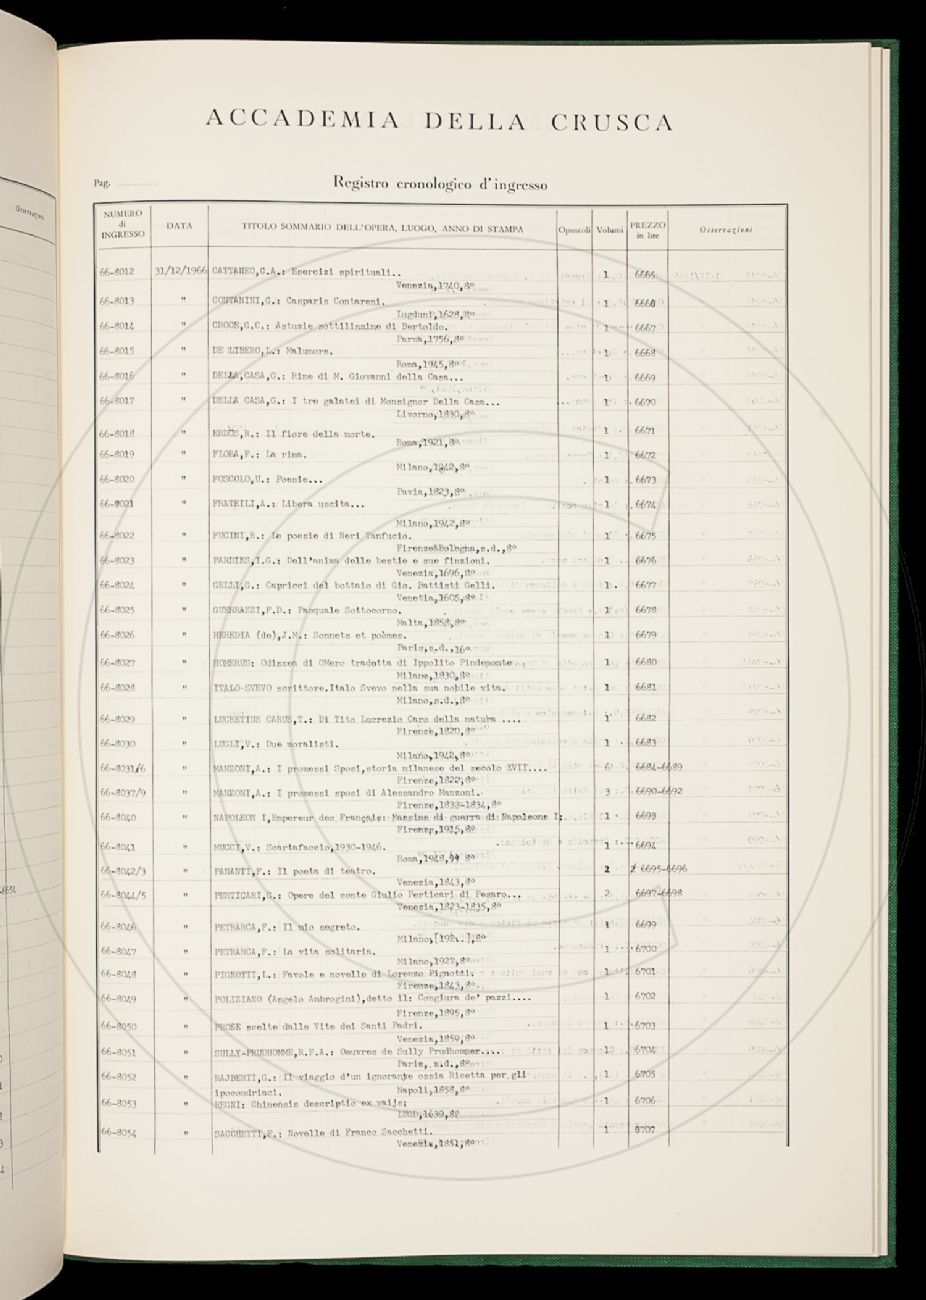 ACCADEMIA DELLA CRUSCA
Pag.
Registro cronologico d'ingresso
NUMERO di INGRESSO DATA TITOLO SOMMARIO DELL'OPERA, LUOGO, ANNO DI STAMPA Opuscoli Volumi PREZZO in lire Osservazioni
66-8012 31/12/1966 CATTANEO,C.A.: Esercizi spirituali.. 1 6665
Venezia,1740,8º
66-8013 " CONTARINI,G.: Casparis Contareni. 1 6666
Lugduni,1628,8º
66-8014 " CROCE,G.C.: Astuzie sottilissime di Bertoldo. 1 6667
Parma,1756,8º
66-8015 " DE LIBERO,L.: Malumore. 1 6668
Roma,1945,8º
66-8016 " DELLA,CASA,G.: Rime di M. Giovanni della Casa... 1 6669
66-8017 " DELLA CASA,G.: I tre galatei di Monsignor Della Casa... 1 6670
Livorno,1830,8º
66-8018 " ERDÖS,R.: Il fiore della morte. 1 6671
Roma,1921,8º
66-8019 " FLORA,F.: La rima. 1 6672
Milano,1942,8º
66-8020 " FOSCOLO,U.: Poesie... 1 6673
Pavia,1823,8º
66-8021 " FRATEILI,A.: Libera uscita... 1 6674
Milano,1942,8º
66-8022 " FUCINI,R.: Le poesie di Neri Tanfucio. 1 6675
Firenze&Bologna,s.d.,8º
66-8023 " PARDIES,I.G.: Dell'anima delle bestie e sue finzioni. 1 6676
Venezia,1696,8º
66-8024 " GELLI,G.: Capricci del bottaio di Gio. Battisti Gelli. 1 6677
Venetia,1605,8º
66-8025 " GUERRAZZI,F.D.: Pasquale Sottocorno. 1 6678
Malta,1858,8º
66-8026 " HEREDIA (de),J.M.: Sonnets et poèmes. 1 6679
Paris,s.d.,16º
66-8027 " HOMERUS: Odissea di OMero tradotta di Ippolito Pindemonte 1 6680
Milano,1830,8º
66-8028 " ITALO-SVEVO scrittore.Italo Svevo nella sua nobile vita. 1 6681
Milano,s.d.,8º
66-8029 " LUCRETIUS CARUS,T.: Di Tito Lucrezio Caro della natura .... 1 6682
Firenze,1820,8º
66-8030 " LUGLI,V.: Due moralisti. 1 6683
Milano,1942,8º
66-8031/6 " MANZONI,A.: I promessi Sposi,storia milanese del secolo XVII.... 6 6684-6689
Firenze,1822,8º
66-8037/9 " MANZONI,A.: I promessi sposi di Alessandro Manzoni. 3 6690-6692
Firenze,1833-1834,8º
66-8040 " NAPOLEON I,Empereur des Français: Massime di guerra di Napoleone I: 1 6693
Firenze,1915,8º
66-8041 " MUCCI,V.: Scartafaccio,1930-1946. 1 6694
Roma,1948, 8º
66-8042/3 " PANANTI,F.: Il poeta di teatro. 2 6695-6696
Venezia,1843,8º
66-8044/5 " PERTICARI,G.: Opere del conte Giulio Perticari di Pesaro... 2 6697-6698
Venezia,1823-1835,8º
66-8046 " PETRARCA,F.: Il mio segreto. 1 6699
Milano,[192..],8º
66-8047 " PETRARCA,F.: La vita solitaria. 1 6700
Milano,1927,8º
66-8048 " PIGNOTTI,L.: Favole e novelle di Lorenzo Pignotti. 1 6701
Firenze,1843,8º
66-8049 " POLIZIANO (Angelo Ambrogini),detto il: Congiura de' pazzi.... 1 6702
Firenze,1895,8º
66-8050 " PROSE scelte dalle Vite dei Santi Padri. 1 6703
Venezia,1859,8º
66-8051 " SULLY-PRUDHOMME,R.F.A.: Oeuvres de Sully Prudhommer.... 1 6704
Paris, s.d.,8º
66-8052 " RAJBERTI,G.: Il viaggio d'un ignorante ossia Ricetta per gli 1 6705
ipocondriaci. Napoli,1858,8º
66-8053 " REGNI: Chinensis descriptio ex vaijs; 1 6706
LUGD,1639,8º
66-8054 " SACCHETTI,F.: Novelle di Franco Sacchetti. 1 6707
Venezia,1851,8º